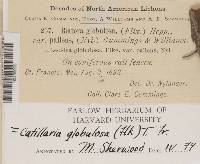 Decades of North American Lichens.
Clara E. Cummings, Thos. A. Williams and A. B. Seymour
Biatora globulosa, (Flke.) Hepp.,
var. pallens, (Nyl.) Cummings & Williams.
Lecidea globulosa, Flke. var. pallens, Nyl.
On coniferous rail fences.
St. Francis, Me., Aug.
Det. Dr. Nylander.
Coll. Clara E. Cummings
FARLOW HERBARIUM OF
HARVARD UNIVERSITY
= Catillaria globulosa (Flk) Th. Fr.
ANNOTATED BY M. Sherwood